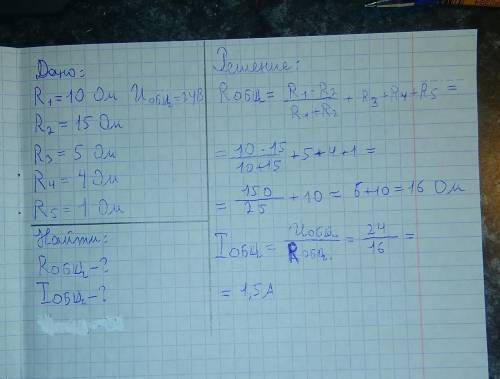 Дано:
R₁ = 10 Ом Uобщ = 24В
R₂ = 15 Ом
R₃ = 5 Ом
R₄ = 4 Ом
R₅ = 1 Ом
Найти:
Rобщ - ?
Iобщ - ?
Решение:
Rобщ = (R₁ · R₂)/(R₁ + R₂) + R₃ + R₄ + R₅ =
= (10 · 15)/(10 + 15) + 5 + 4 + 1 =
= 150/25 + 10 = 6 + 10 = 16 Ом
Iобщ = Uобщ./Rобщ. = 24/16 =
= 1,5 А